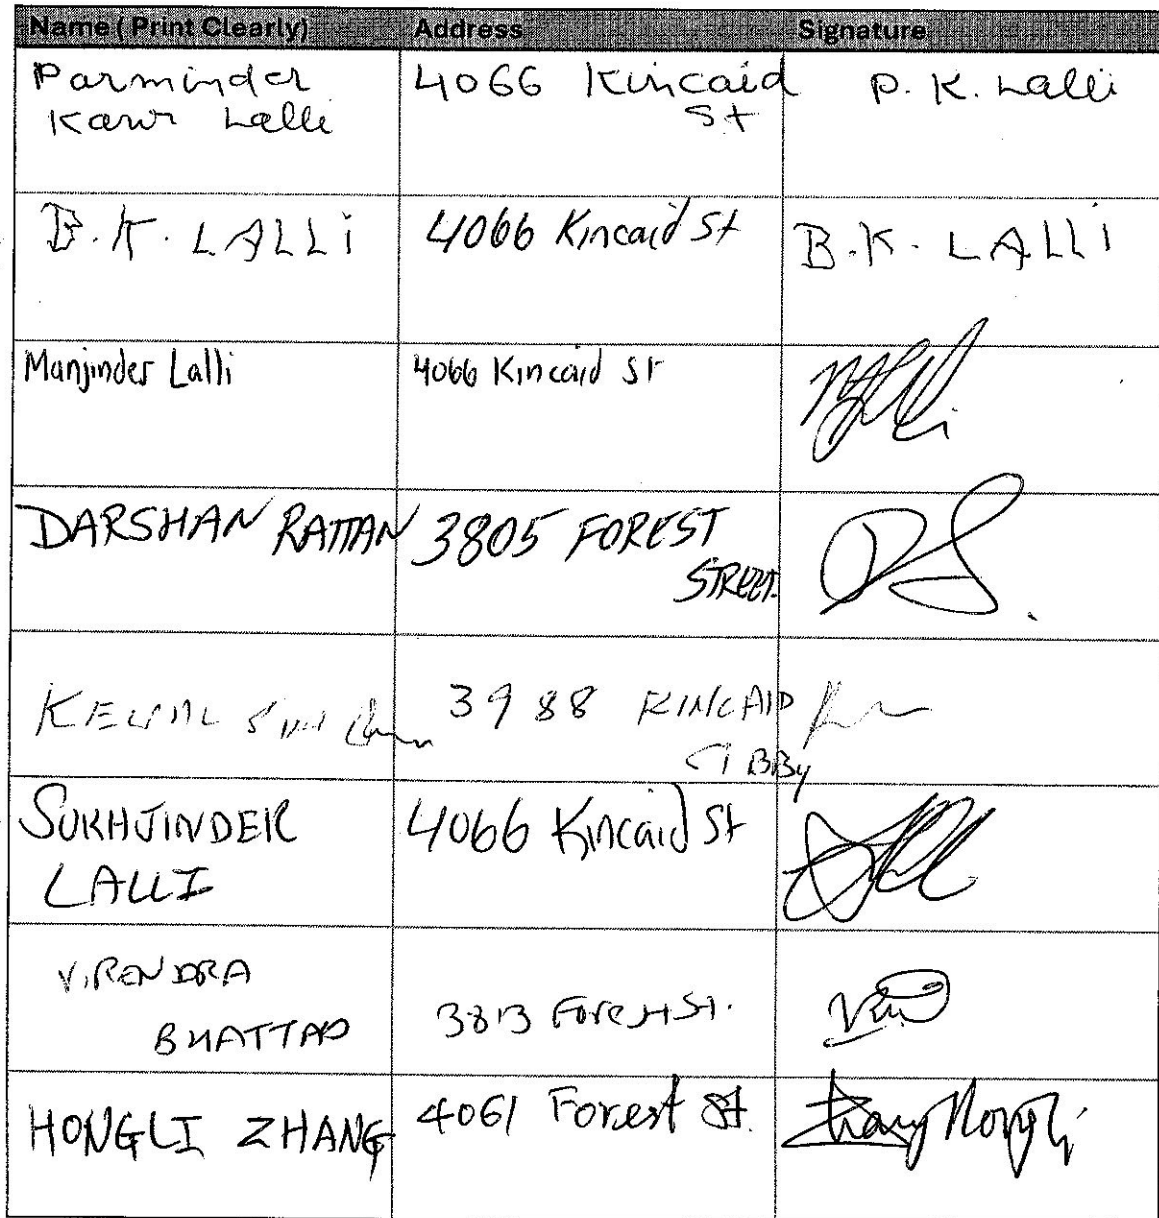 Name ( Print Clearly) Address Signature
Parminder 4066 Kincaid P. K. Lalli
Kaur Lalli St
B.K. LALLi 4066 Kincaid St B.K. LALLI
Manjinder Lalli 4066 Kincaid St
DARSHAN RATTAN 3805 FOREST
STREET.
KEWAL 3988 KINCAID
BBy
SUKHJINDER 4066 Kincaid St
LALLI
ViRENDRA
BHATTAD 3813 Forest St.
HONGLI ZHANG 4061 Forest St. Zhang Hongli